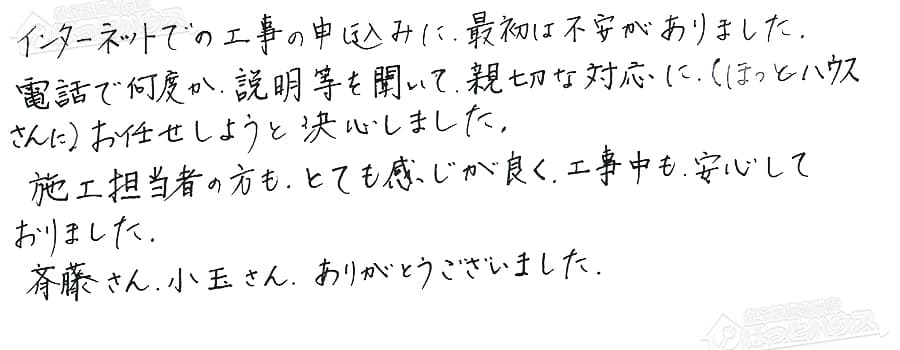 インターネットでの工事の申し込みに、最初は不安がありました。
電話で何度か、説明等を聞いて、親切な対応に、(ほっとハウス
さんに)お任せしようと決心しました。
施工担当者の方も、とても感じが良く、工事中も、安心して
おりました。
斉藤さん、小玉さん、ありがとうございました。
ほっとハウス